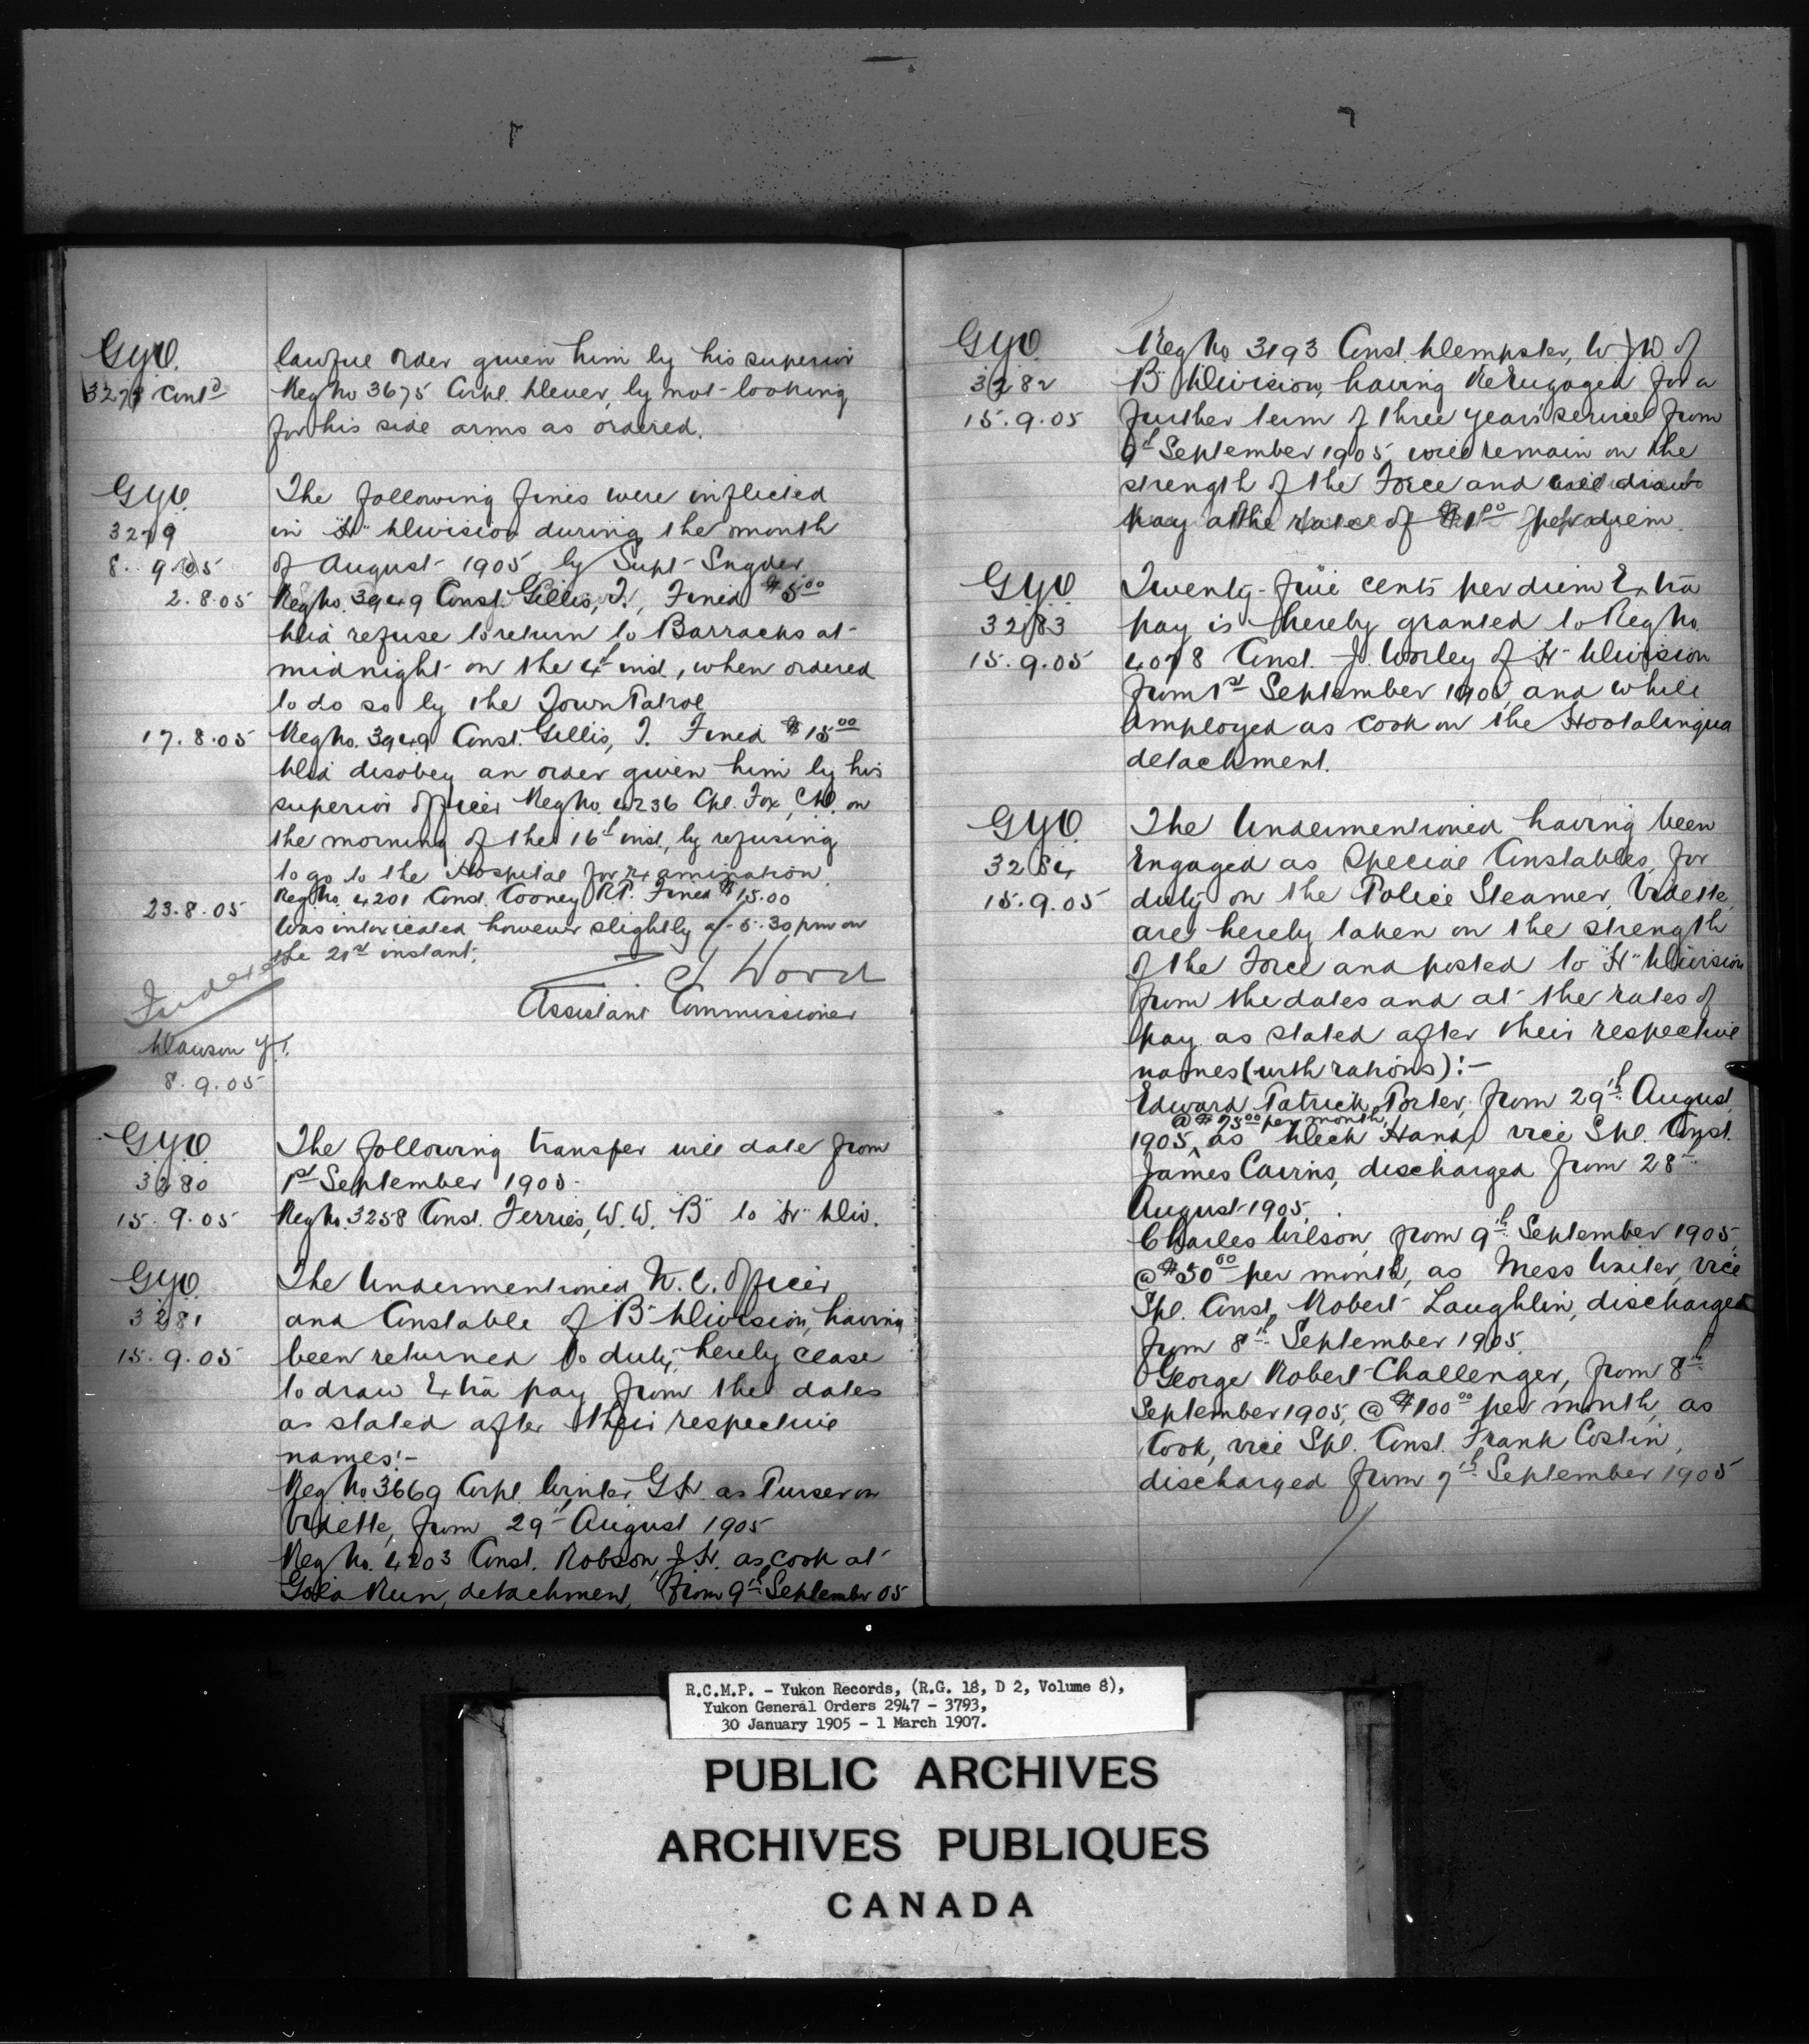 GYO.
3278 Contd
lawful order given him by his superior
Reg No 3675 Corpl. Dever, by not looking
for his side arms as ordered.
GYO
3279
8. 9. 05
The following fines were inflicted
in "H" Division during the month
of August 1905, by Supt Snyder
2.8.05 Reg No. 3949 Const. Gillis, J., Fined $5.00
Did refuse to return to Barracks at
midnight on the 4th inst., when ordered
to do so by the Town Patrol
17.8.05 Reg No. 3949 Const. Gillis, J. Fined $15.00
Did disobey an order given him by his
superior officer Reg No. 4236 Cpl. Fox, on
the morning of the 16th inst, by refusing
to go to the Hospital for examination.
23.8.05 Reg No. 4201 Const. Cooney R.P. Fined $15.00
Was intoxicated however slightly at 5.30 pm on
the 21st instant.
Z. T. Wood
Assistant Commissioner
Dawson Y.T.
8.9.05
GYO
3280
15.9.05
The following transfer will date from
1st September 1905.
Reg No. 3258 Const. Ferries, W.W. "B" to "H" Div.
GYO
3281
15.9.05
The Undermentioned N.C. Officer
and Constable of "B" Division, having
been returned to duty, hereby cease
to draw Extra pay from the dates
as stated after their respective
names:-
Reg No 3669 Corpl. Winter, G.H. as Purser on
Vidette, from 29th August 1905
Reg No. 4203 Const. Robson, J.H. as cook at
Gold Run, detachment, from 9th September 05
GYO
3282
15.9.05
Reg No. 3193 Const. Dempster, W.J.D. of
"B" Division, having ReEngaged for a
further term of three years' service from
9th September 1905, will remain on the
strength of the Force and will draw
pay at the rate of $1.00 per diem.
GYO
3283
15.9.05
Twenty-five cents per diem Extra
pay is hereby granted to Reg No.
4078 Const. J. Worley of "H" Division
from 1st September 1905, and while
employed as cook on the Hootalinqua
detachment.
GYO
3284
15.9.05
The Undermentioned having been
Engaged as Special Constables, for
duty on the Police Steamer, Vidette,
are hereby taken on the strength
of the Force and posted to "H" Division
from the dates and at the rates of
pay as stated after their respective
names (with rations):-
Edward Patrick Porter, from 29th August
@ $75.00 per month,
1905, as Deck Hand, vice Spl. Const.
James Cairns, discharged from 28th
August 1905.
Charles Wilson, from 9th September 1905,
@ $50.00 per month, as Mess Waiter, vice
Spl. Const. Robert Laughlin, discharged
from 8th September 1905.
George Robert Challenger, from 8th
September 1905, @ $100.00 per month, as
Cook, vice Spl. Const. Frank Costin,
discharged from 7th September 1905
R.C.M.P. - Yukon Records, (R.G. 18, D 2, Volume 8),
Yukon General Orders 2947 - 3793,
30 January 1905 - 1 March 1907.
PUBLIC ARCHIVES
ARCHIVES PUBLIQUES
CANADA